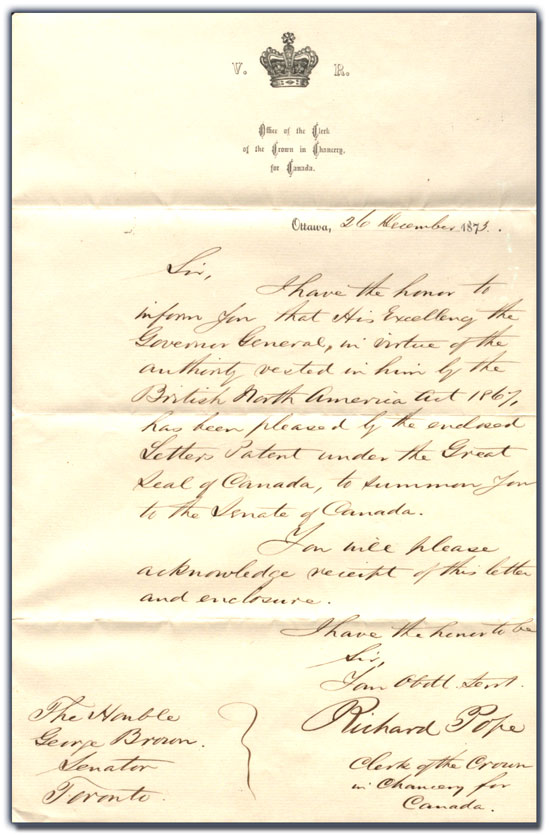 V. R.
Office of the Clerk
of the Crown in Chancery,
for Canada.
Ottawa, 26 December 1873.
Sir,
I have the honor to
inform you that His Excellency the
Governor General, in virtue of the
authority vested in him by the
British North America Act 1867,
has been pleased by the enclosed
Letters Patent under the Great
Seal of Canada, to summon you
to the Senate of Canada.
You will please
acknowledge receipt of this letter
and enclosure.
I have the honor to be
Sir,
Your Obdt. Servt.
Richard Pope
Clerk of the Crown
in Chancery for
Canada.
The Honble
George Brown.
Senator
Toronto.